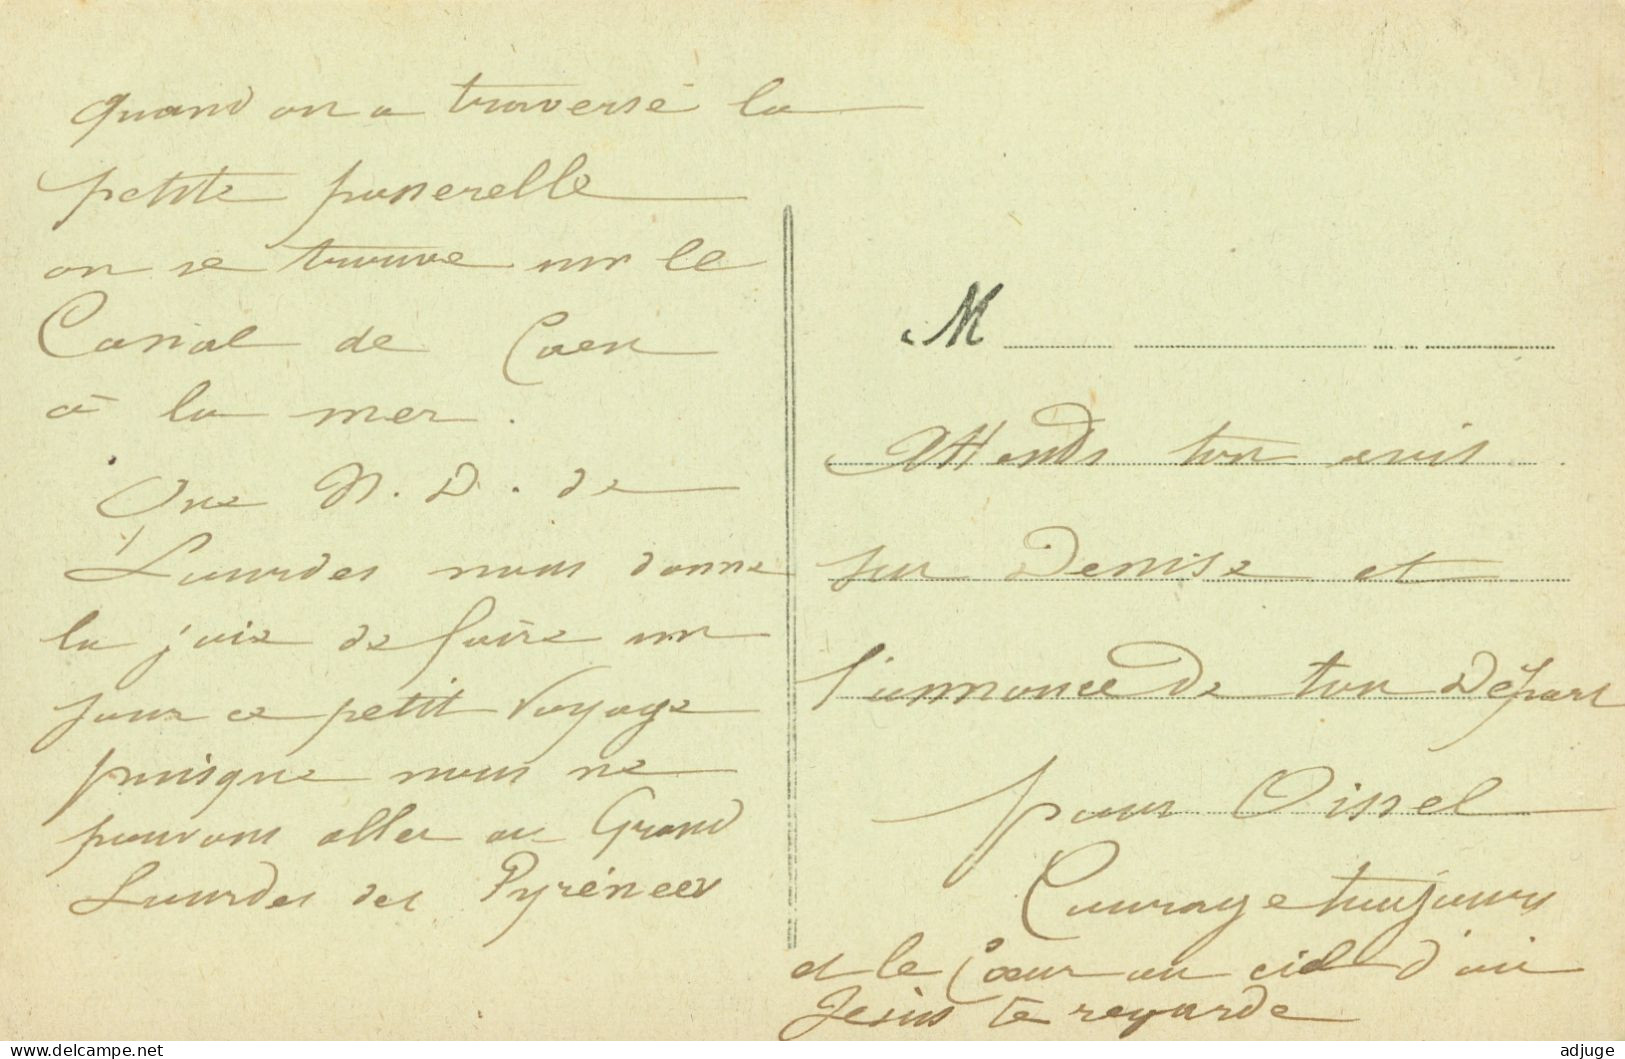 quand on a traversé la
petite passerelle
on se trouve sur le
Canal de Caen
à la mer.
Que N. D. de
Lourdes nous donne
la joie de faire un
jour ce petit voyage
puisque nous ne
pouvons aller au Grand
Lourdes des Pyrénées
M
Attends ton avis
sur Denise et
l'annonce de ton Départ
pour Oissel
Courage toujours
et le Cœur au ciel d'où
Jésus te regarde
delcampe.net
adjuge